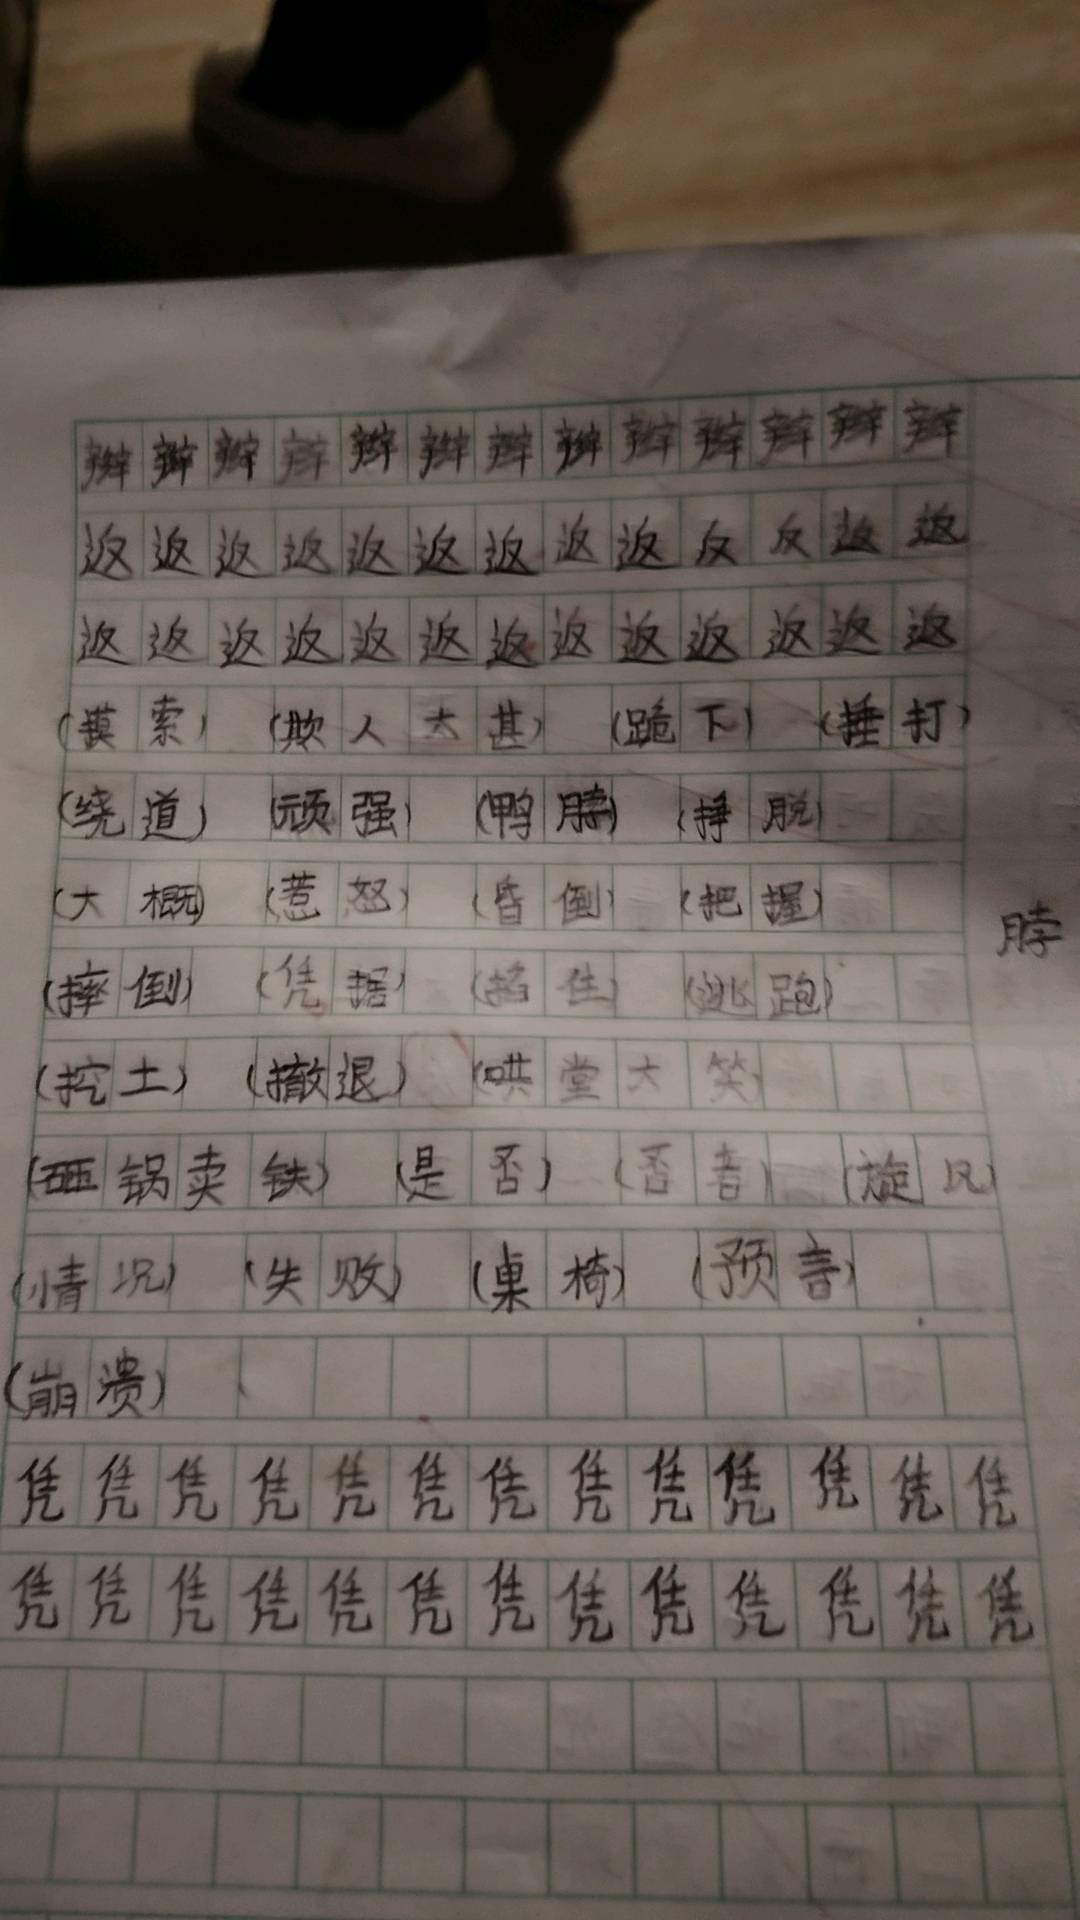 辩辩辩辩辩辩辩辩辩辩辩辩辩
返返返返返返返返返反反返返
返返返返返返返返返返返返返
(摸索) (欺人太甚) (跪下) (捶打)
(绕道) (顽强) (鸭脖) (挣脱)
(大概) (惹怒) (昏倒) (把握)
脖
(摔倒) (凭据) (掐住) (逃跑)
(挖土) (撤退) (哄堂大笑)
(砸锅卖铁) (是否) (否音) (旋风)
(情况) (失败) (桌椅) (预言)
(崩溃)
凭凭凭凭凭凭凭凭凭凭凭凭凭
凭凭凭凭凭凭凭凭凭凭凭凭凭